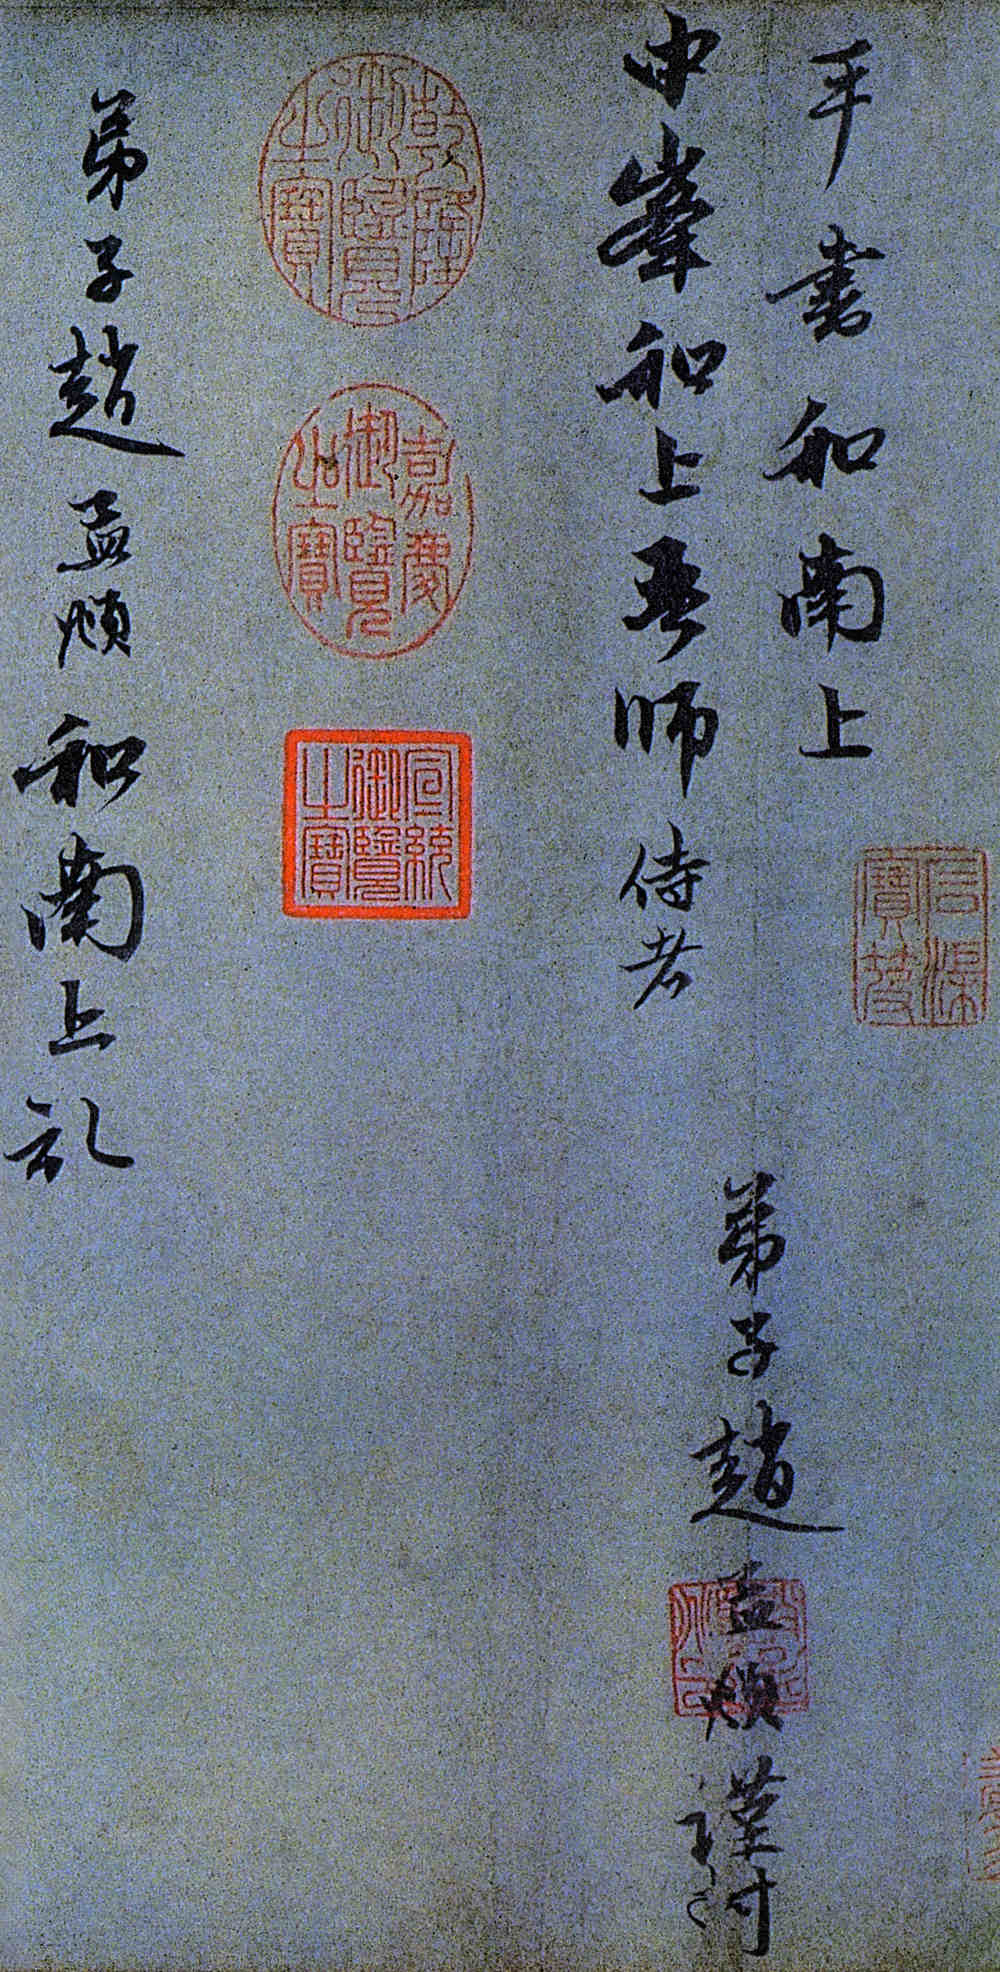 平書和南上
中峯和上吾師侍者
弟子趙孟頫謹封
乾隆
御覽
之寶
嘉慶
御覽
之寶
宣統
御覽
之寶
弟子趙孟頫和南上記